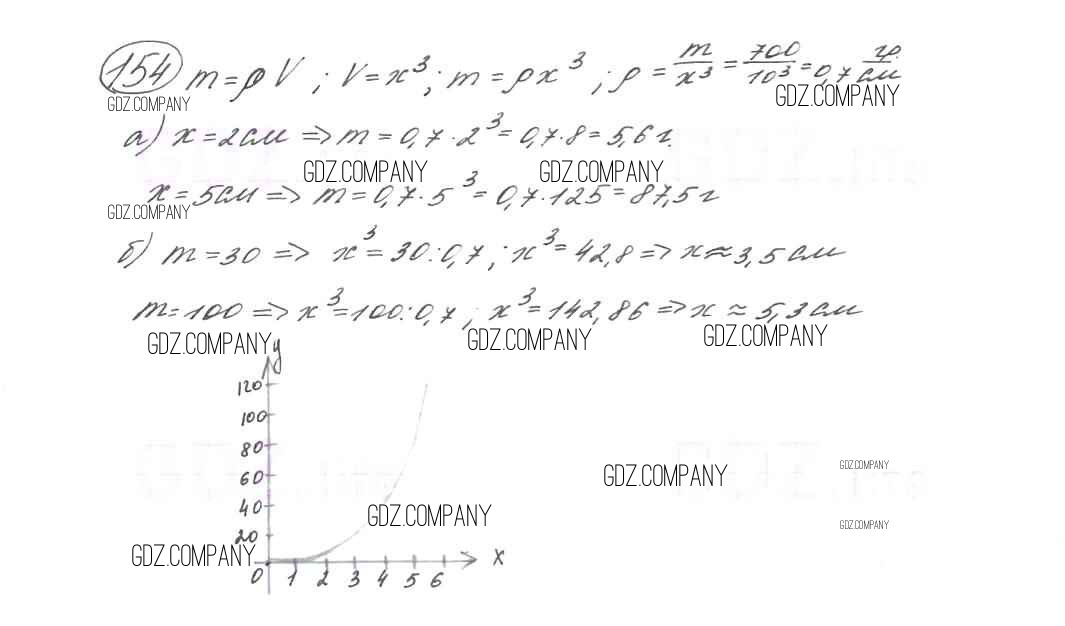 154 m = ρV ; V = x³ ; m = ρx³ ; ρ = m/x³ = 700/10³ = 0,7 гр/см
GDZ.COMPANY GDZ.COMPANY
а) x = 2см => m = 0,7 · 2³ = 0,7 · 8 = 5,6 г.
GDZ.COMPANY GDZ.COMPANY
x = 5см => m = 0,7 · 5³ = 0,7 · 125 = 87,5 г
GDZ.COMPANY
б) m = 30 => x³ = 30 : 0,7 ; x³ = 42,8 => x ≈ 3,5 см
m = 100 => x³ = 100 : 0,7 ; x³ = 142,86 => x ≈ 5,3 см
GDZ.COMPANY GDZ.COMPANY GDZ.COMPANY
y
120
100
80
60
40
20
0 1 2 3 4 5 6 x
GDZ.COMPANY GDZ.COMPANY
GDZ.COMPANY GDZ.COMPANY
GDZ.COMPANY